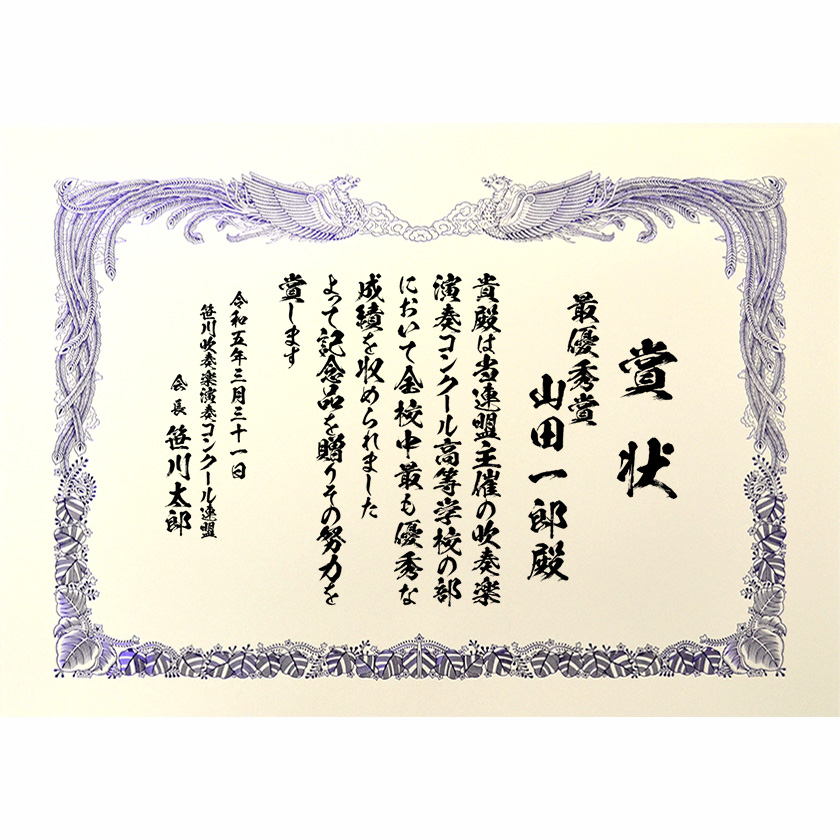 賞状
最優秀賞
山田一郎殿
貴殿は当連盟主催の吹奏楽
演奏コンクール高等学校の部
において全校中最も優秀な
成績を収められました
よって記念品を贈りその努力を
賞します
令和五年三月三十一日
笹川吹奏楽演奏コンクール連盟
会長 笹川太郎